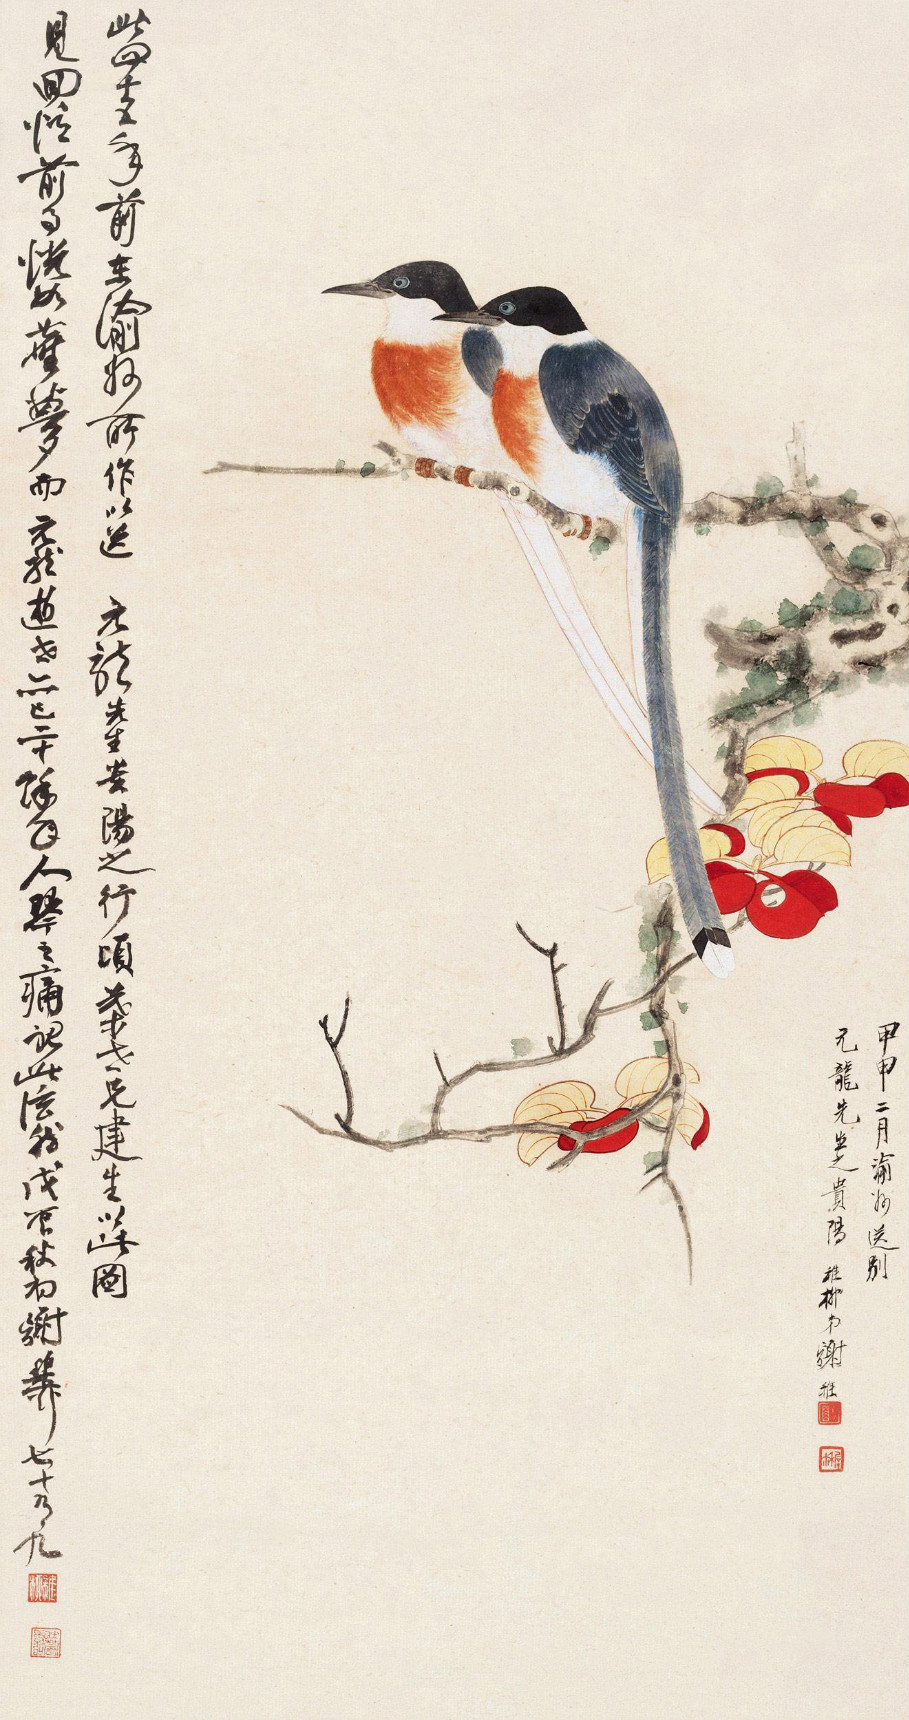 甲申二月渝州送別
元龍先生之貴陽 稚柳弟謝稚
此四十五年前在渝州所作以送 元龍先生貴陽之行頃葉世兄建生以此圖
見回憶前事恍如舊夢而元龍逝世亦已二十餘年人琴之痛記此泫然戊辰秋初謝稚七十有九